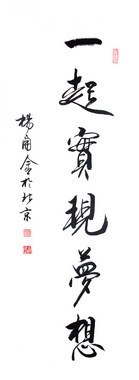 一起實現夢想
楊角金於北京